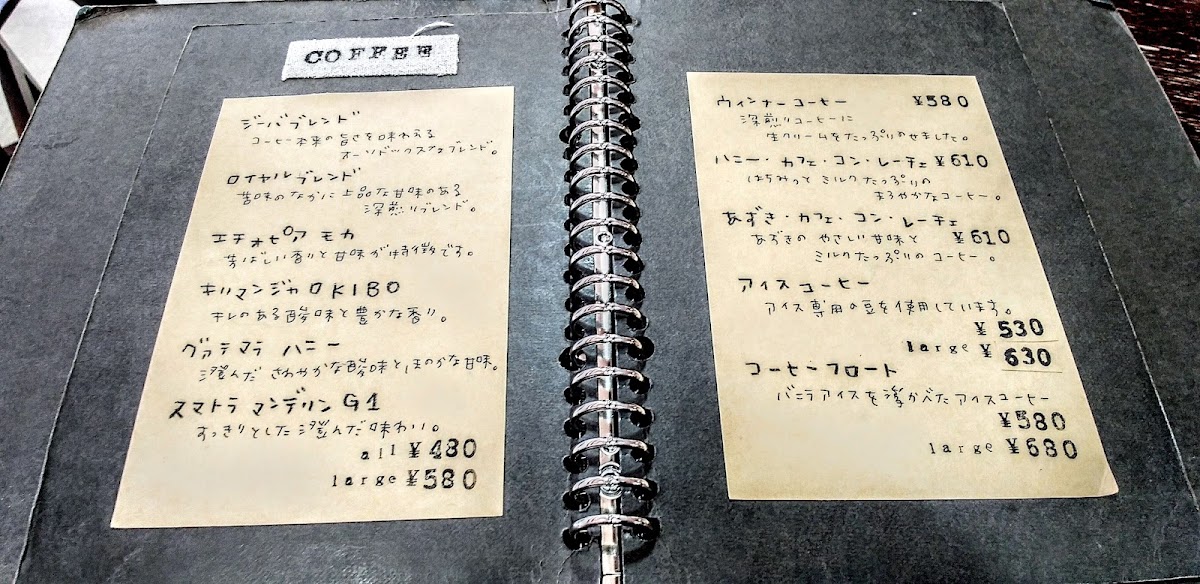 COFFEE
ジーバブレンド
コーヒー本来の旨さを味わえる
オーソドックスなブレンド。
ロイヤルブレンド
苦味のなかに上品な甘味のある
深煎りブレンド。
エチオピア モカ
芳ばしい香りと甘味が特徴です。
キリマンジャロKIBO
キレのある酸味と豊かな香り。
グァテマラ ハニー
澄んだ さわやかな酸味とほのかな甘味。
スマトラ マンデリン G1
すっきりとした澄んだ味わい。
all ¥480
large ¥580
ウィンナーコーヒー ¥580
深煎りコーヒーに
生クリームをたっぷりのせました。
ハニー・カフェ・コン・レーチェ ¥610
はちみつと ミルクたっぷりの
まろやかなコーヒー。
あずき・カフェ・コン・レーチェ
あずきの やさしい甘味と ¥610
ミルクたっぷりの コーヒー。
アイスコーヒー
アイス専用の豆を使用しています。
¥530
large ¥630
コーヒーフロート
バニラアイスを浮かべたアイスコーヒー
¥580
large ¥680